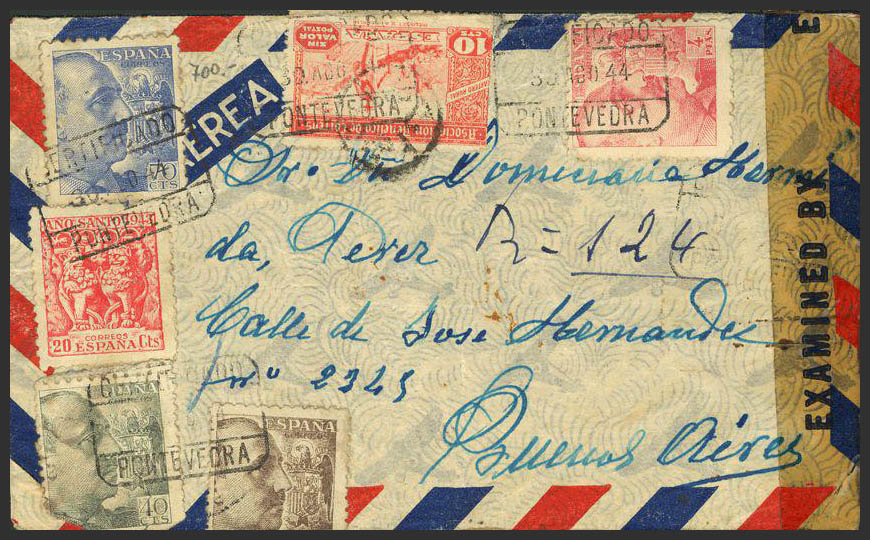 ESPAÑA
CORREOS
70 CTS
700.-
CERTIFICADO
PONTEVEDRA
AEREA
SIN VALOR POSTAL
ESPAÑA
10 CTS
30 AGO 44
PONTEVEDRA
4 PTAS
30 AGO 44
PONTEVEDRA
EXAMINED BY
E
Sr. Dn Dominciana Hermi
da, Perez R=124
Calle de Jose Hernandez
nº 2345
Buenos Aires
AÑO SANTO
CORREOS
20 ESPAÑA Cts
PONTEVEDRA
ESPAÑA
40 CTS
PONTEVEDRA
ESPAÑA
CORREOS